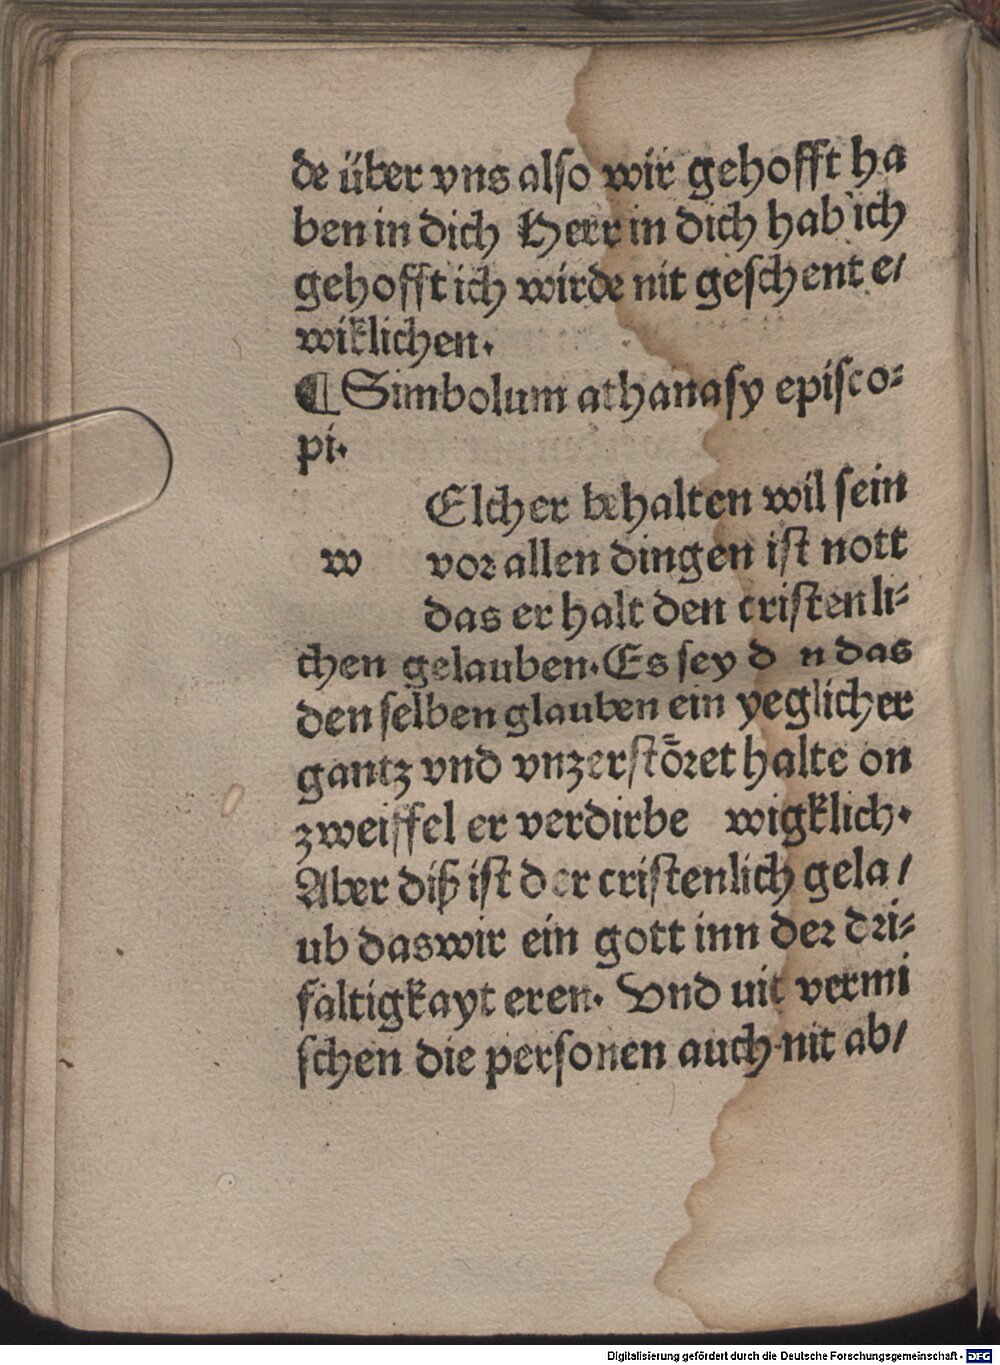 de über vns also wir gehofft ha
ben in dich Herr in dich hab ich
gehofft ich wirde nit geschent e/
wiklichen.
¶ Simbolum athanasy episco⸗
pi.
Elcher behalten wil sein
w vor allen dingen ist nott
das er halt den cristenli⸗
chen gelauben. Es sey d n das
den selben glauben ein yeglicher
gantz vnd vnzerstöret halte on
zweiffel er verdirbe wigklich.
Aber diß ist der cristenlich gela/
ub daswir ein gott inn der dri⸗
faltigkayt eren. Vnd uit vermi
schen die personen auch nit ab/
Digitalisierung gefördert durch die Deutsche Forschungsgemeinschaft - DFG